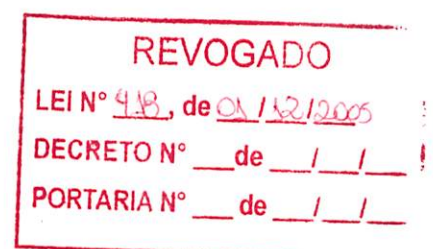 REVOGADO
LEI N° 418, de 01/12/2005
DECRETO N° ___de ___/___/___
PORTARIA N° ___de ___/___/___